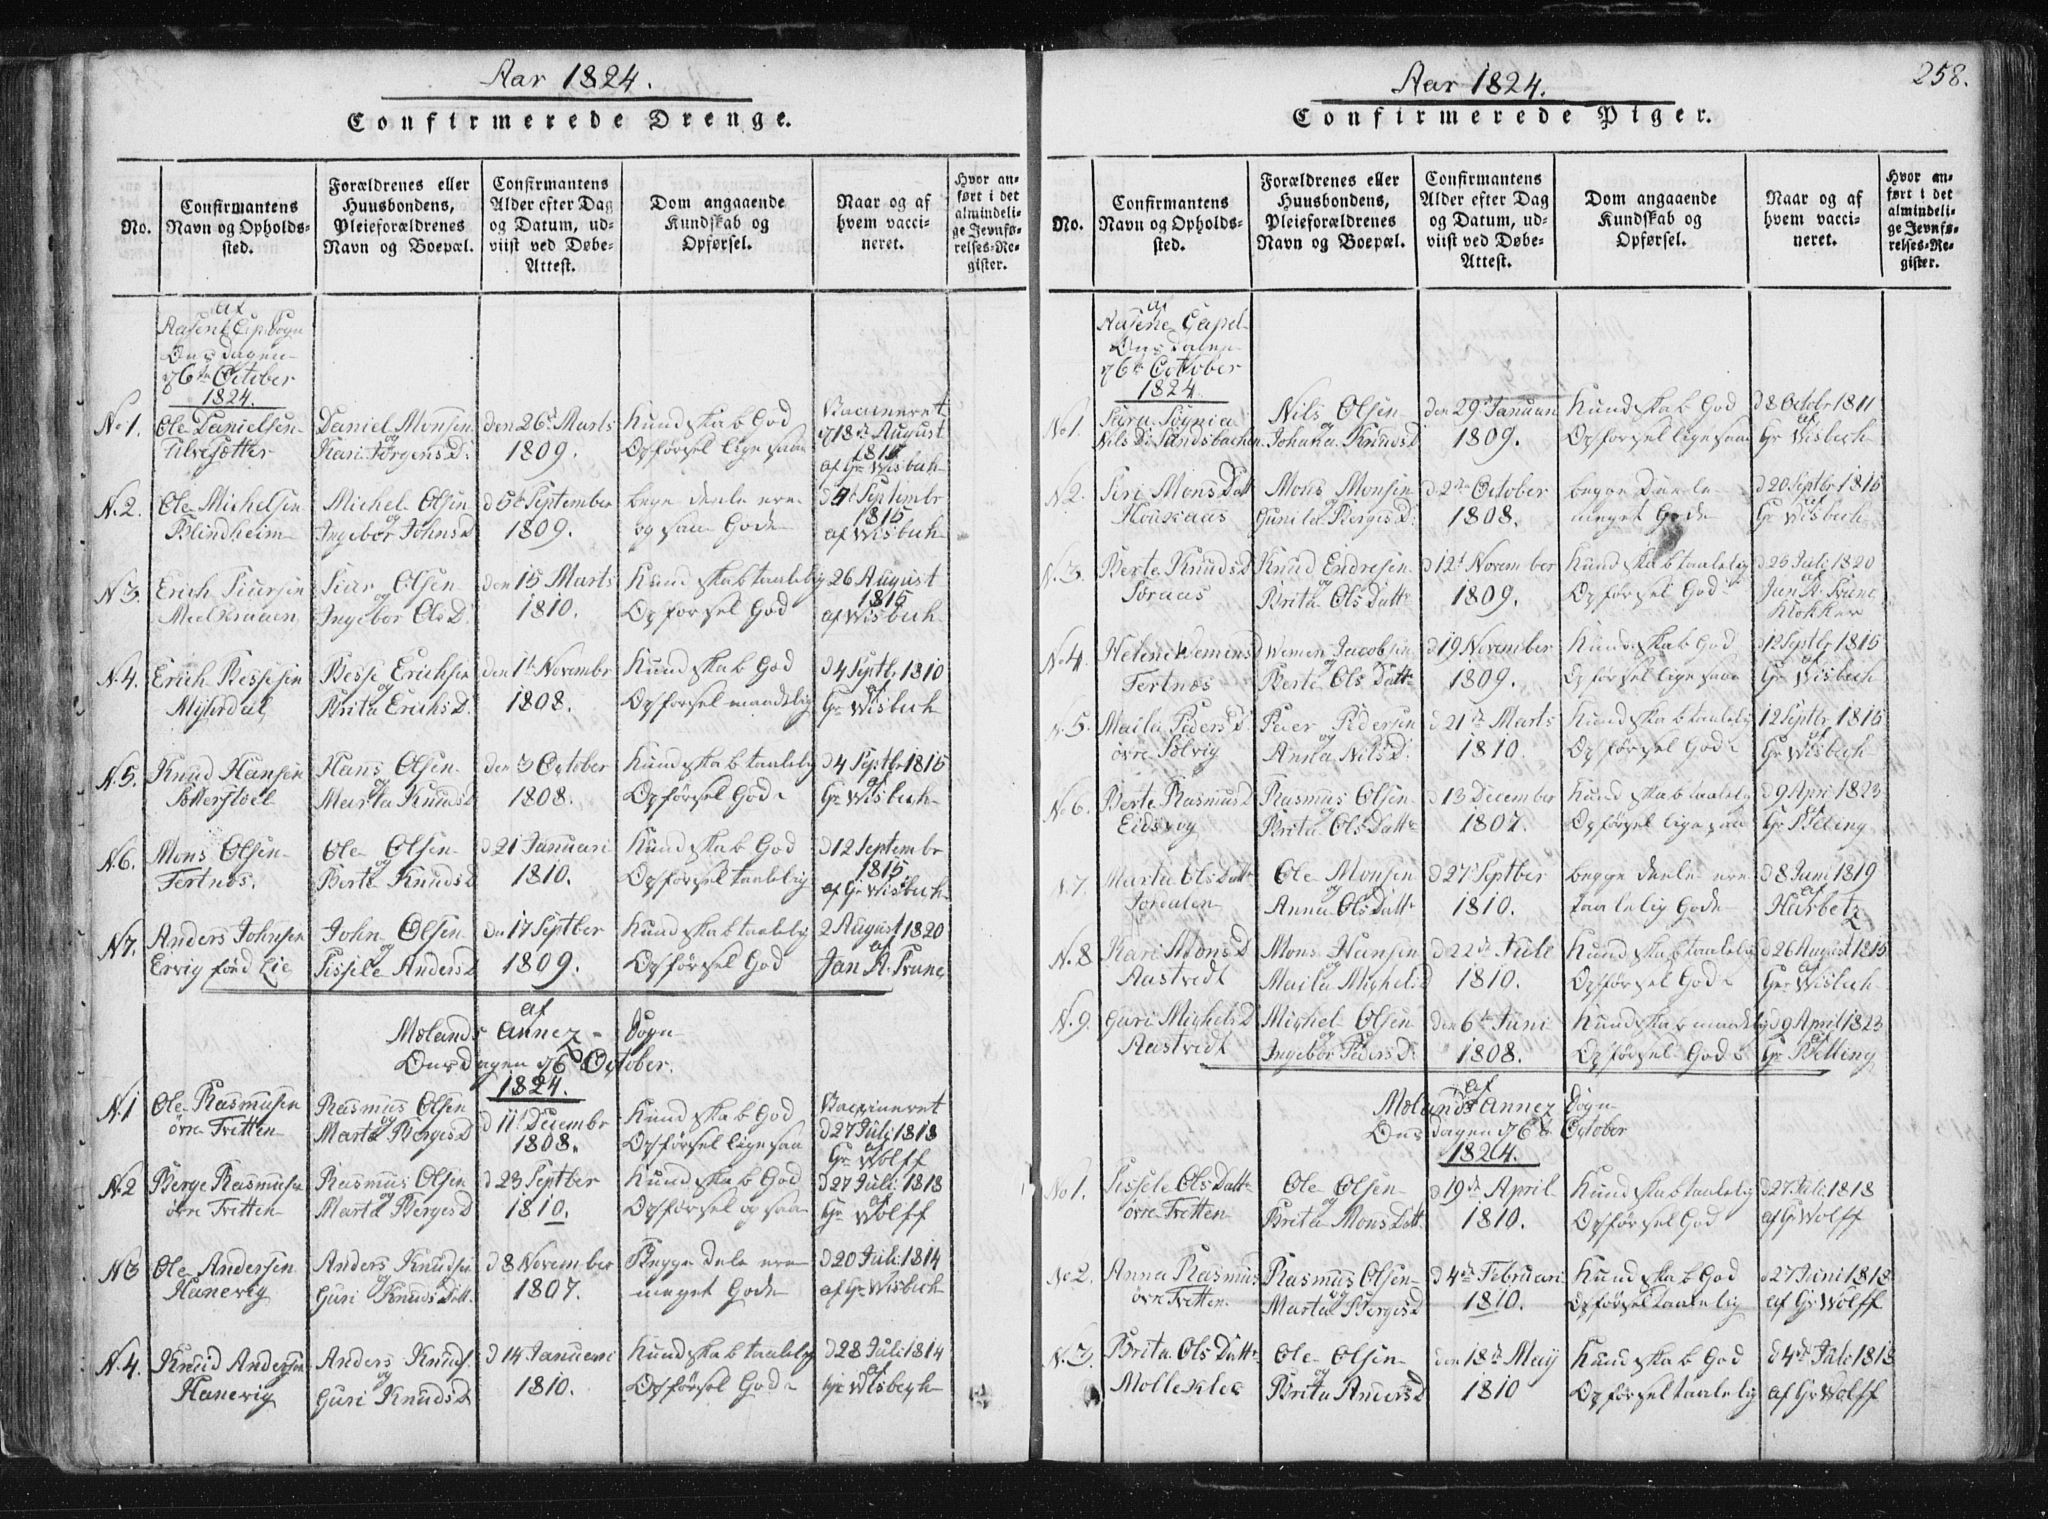 Aar 1824.
Confirmerede Drenge.
No.
Confirmantens
Navn og Opholds-
sted.
Forældrenes eller
Huusbondens,
Pleieforældrenes
Navn og Boepæl.
Confirmantens
Alder efter Dag
og Datum, ud-
viist ved Døbe-
Attest.
Dom angaaende
Kundskab og
Opførsel.
Naar og af
hvem vacci-
neret.
Hvor an-
ført i det
almindeli-
ge Jevnfø-
relses-Re-
gister.
af
Onsdagen
d 6te October
1824.
No 1.
Ole Danielsen
Daniel Monsen
og
Kari Jørgens D.
den 26d Marts
1809.
Kundskab God
Opførsel ligesaa
Vaccineret
d 18de August
af Hr Wisbech
N.2
Ole Michelsen
Blindheim
Michel Olsen
og
Ingebor Johns D
d 5te September
1809.
begge deele ere
og saa Gode
d 4t Septembr
1815
af Wisbech
N.3
Erich Siursen
Siur Olsen
og
Ingebor Ols D.
den 15 Marts
1810.
Kundskab taalelig
Opførsel God
26 August
1815
af Wisbech
N.4.
Erich Bessesen
Mijhrdal
Besse Erichsen
og
Brita Erichs D.
den 1te Novembr
1808.
Kundskab God
Opførsel maadelig
d 4 Septbr 1810
af
Hr Wisbech
N.5.
Knud Hansen
Hans Olsen
og
Marta Knuds D
den 3 October
1808.
Kundskab taalelig
Opførsel God
d 4 Septbr 1815
af
Hr Wisbech
N.6.
Mons Olsen
Tertnes.
Ole Olsen
og
Berte Knuds D
d 21 Januari
1810.
Kundskab God
Opførsel taalelig
d 12 Septembr
1815
af Hr Wisbech
N.7.
Anders Johnsen
John Olsen
og
Sissele Anders D
den 17 Septber
1809.
Kundskab taalelig
Opførsel God
2 August 1820
af
Jan A. Trane
af
Mælands Annex Sogn
Onsdagen d 6 October.
1824.
N.1
Ole Rasmusen
øvre Tvetten
Rasmus Olsen
og
Marta Berges D
d 11t Decembr
1808.
Kundskab God
Opførsel ligesaa
Vaccineret
d 27 Juli 1818
af
Hr Wolff
N.2
Berge Rasmusen
øvre Tvetten
Rasmus Olsen
og
Marta Berges D
d 23 Septber
1810.
Kundskab God
Opførsel og saa
d 27 Juli 1818
af
Hr Wolff
N.3
Ole Andersen
Hanevig
Anders Knudsen
og
Guri Knuds Datt.
d 8 November
1807.
Begge dele ere
meget Gode
d 20 Juli 1814
af Hr Wisbech
N.4.
Knud Andersen
Hanevig
Anders Knuds.
og
Guri Knuds D
d 14 Januari
1810.
Kundskab taalelig
Opførsel God
d 28 Juli 1814
af
Hr Wisbech
Aar 1824.
258.
Confirmerede Piger.
No.
Confirmantens
Navn og Opholds-
sted.
Forældrenes eller
Huusbondens,
Pleieforældrenes
Navn og Boepæl.
Confirmantens
Alder efter Dag
og Datum, ud-
viist ved Døbe-
Attest.
Dom angaaende
Kundskab og
Opførsel.
Naar og af
hvem vacci-
neret.
Hvor an-
ført i det
almindeli-
ge Jevnfø-
relses-Re-
gister.
af
d 6te October
1824
No 1.
Nils D. Sandsbachen
Nils Olsen
og
Johana Knuds D
den 29 Januari
1809.
Kundskab God
Opførsel ligesaa
d 8 Octobr 1811
af
Hr Wisbech
N.2.
Siri Mons Datt
Mons Monsen
og
Gunild Berges D.
d 2den October
1808.
begge Deele
meget Gode
d 20 Septbr 1815
af
Hr Wisbech
N.3.
Berte Knuds D
Knud Endresen
og
Brita Ols Datter
d 12t November
1809.
Kundskab taalelig
Opførsel God
d 25 Juli 1820
af
Jan A. Trane
Klokker
No 4.
Helene Wemens D
Tertnes
Wemen Jacobsen
og
Berte Ols Datter
d 19 November
1809.
Kundskab God
Opførsel ligesaa
d 12 Septbr 1815
af
Hr Wisbech
N.5.
Maita Peders D.
øvre Sølvig
Peder Pedersen
og
Anna Nils D.
d 21de Marts
1810.
Kundskab taalelig
Opførsel God
12 Septbr 1815
af
Hr Wisbech
N.6.
Berte Rasmus D
Eidsvig
Rasmus Olsen
og
Brita Ols Datter
d 13 December
1807.
Kundskab taalelig
Opførsel ligesaa
d 9 April 1823
af
Hr Belling
N.7.
Marta Ols Datter
Jordalen
Ole Monsen
og
Anna Ols Datter
d 27 Septber
1810.
begge deele ere
taalelig Gode
d 8 Juni 1819
af
Harbetz
N.8
Kari Mons D
Aastvedt
Mons Hansen
og
Maita Mighels D
d 22de Juli
1810.
Kundskab taalelig
Opførsel God
d 26 August 1815
af
Hr Wisbech
N.9.
Guri Mighels D
Aastvedt
Mighel Olsen
og
Ingebor Peders D.
den 6te Juni
1808.
Kundskab maadelig
Opførsel God
d 9 April 1823
af
Hr Belling
af
Mælands Annex Sogn
Onsdagen d 6te October
1824.
No 1.
Sissele Ols Datter
øvre Tvetten
Ole Olsen
og
Brita Mons Datt.
d 19de April
1810.
Kundskab taalelig
Opførsel God
d 27 Juli 1818
af Hr Wolff
No 2.
Anna Rasmus D
øvre Tvetten
Rasmus Olsen
og
Marta Berges D
d 4de Februari
1810.
Kundskab God
Opførsel taalelig
d 27 Juni 1818
af Hr Wolff
N.3.
Brita Ols Datter
Ole Olsen
og
Brita Anders D
den 18de Maij
1810
Kundskab God
Opførsel taalelig
d 4de Juli 1818
af Hr Wolff